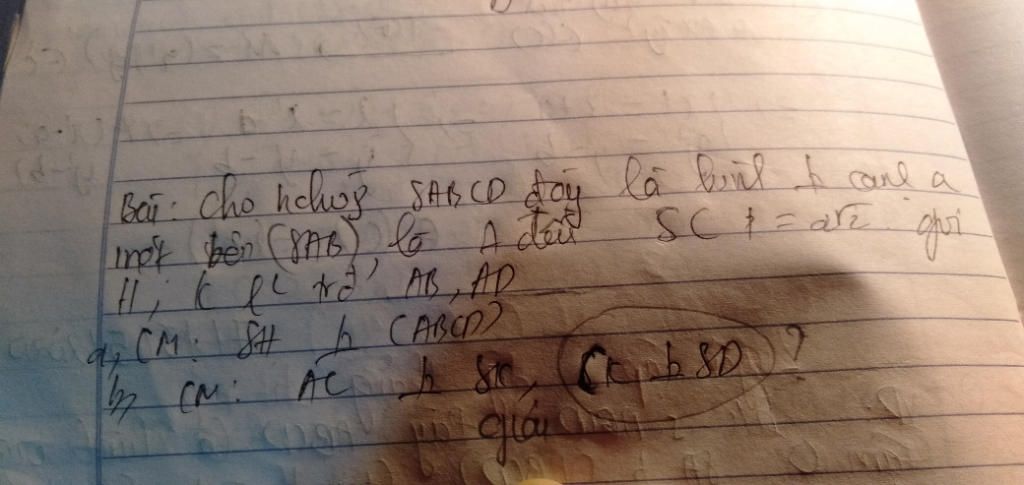 Bài: Cho hchóp SABCD đáy là hình h canh a
mặt bên (SAB), là Δ đều SC = a√2. gọi
H, K trđ AB, AD
a, CM: SH ⊥ (ABCD)
b, CM: AC ⊥ SK, CK ⊥ SD ?
giải